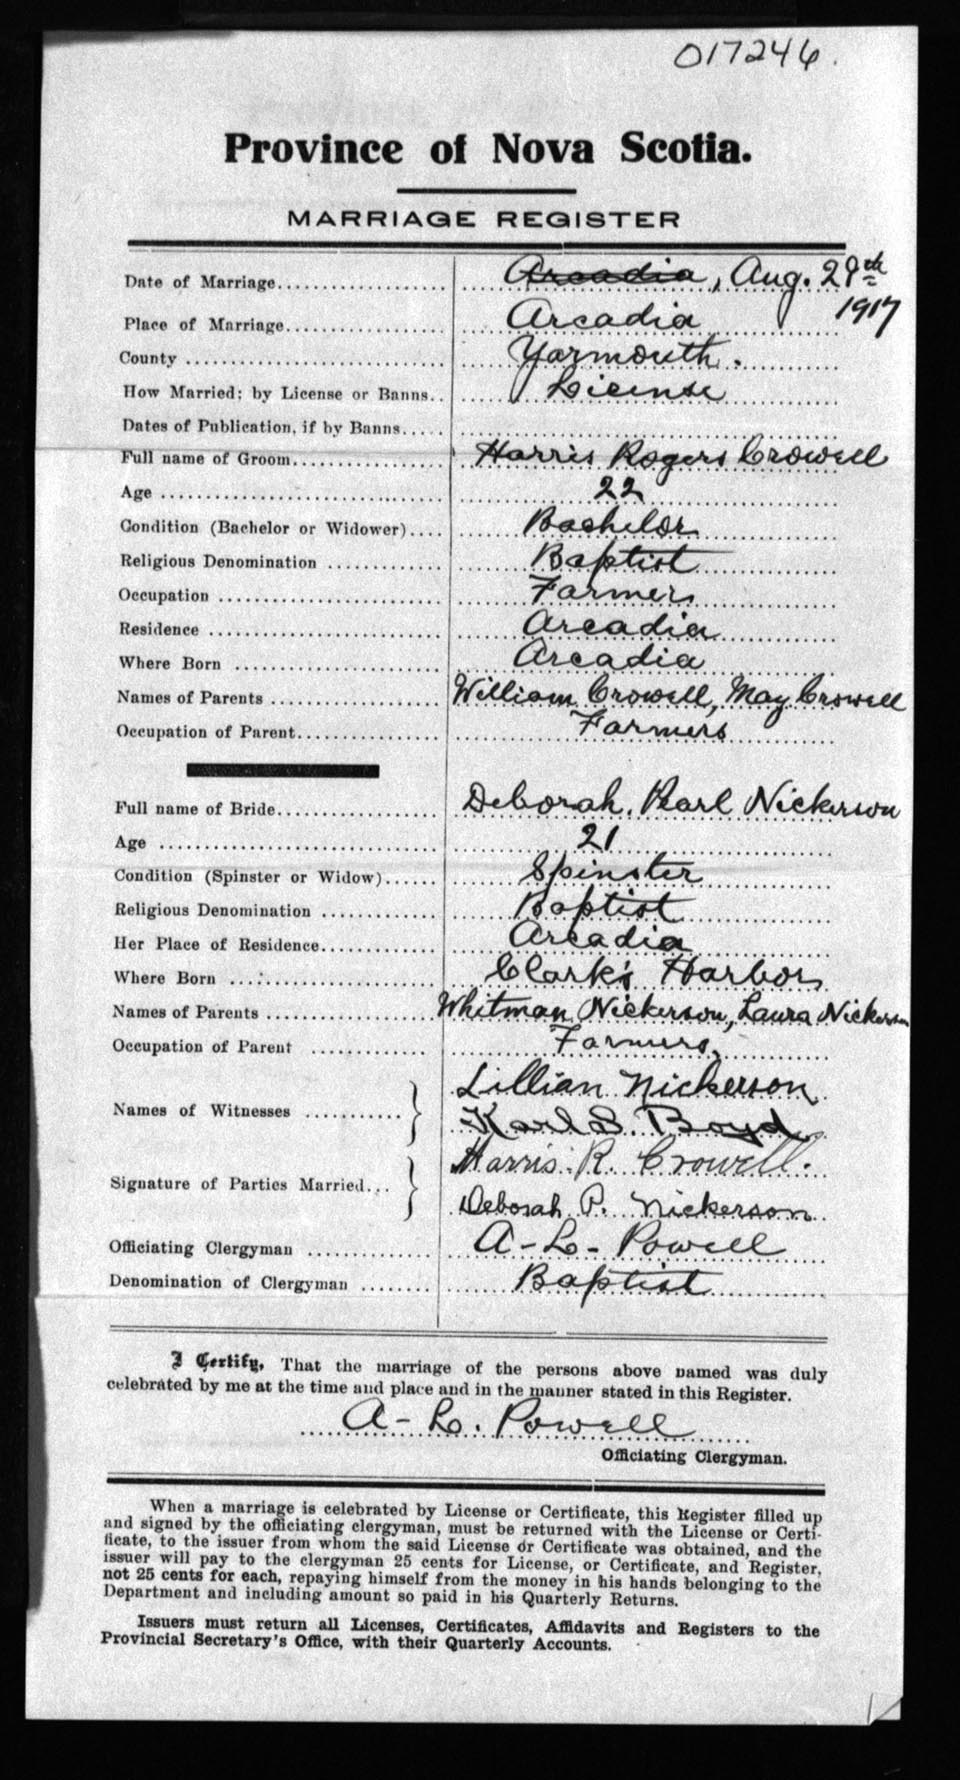 017246.
Province of Nova Scotia.
MARRIAGE REGISTER
Date of Marriage.................. Arcadia, Aug. 28th
1917
Place of Marriage.................. Arcadia
County .................. Yarmouth.
How Married; by License or Banns.. License
Dates of Publication, if by Banns.....
Full name of Groom.................. Harris Rogers Crowell
Age .................. 22
Condition (Bachelor or Widower).... Bachelor
Religious Denomination ............ Baptist
Occupation .................. Farmer
Residence .................. Arcadia
Where Born .................. Arcadia
Names of Parents .................. William Crowell, May Crowell
Occupation of Parent.................. Farmers
Full name of Bride.................. Deborah Pearl Nickerson
Age .................. 21
Condition (Spinster or Widow)...... Spinster
Religious Denomination ............ Baptist
Her Place of Residence............. Arcadia
Where Born .................. Clark's Harbor
Names of Parents .................. Whitman Nickerson, Laura Nickerson
Occupation of Parent ............ Farmers.
Lillian Nickerson
Names of Witnesses ..........
Karl S. Boyd
Harris R. Crowell.
Signature of Parties Married...
Deborah P. Nickerson
Officiating Clergyman ............ A-L- Powell
Denomination of Clergyman ........ Baptist
I Certify, That the marriage of the persons above named was duly
celebrated by me at the time and place and in the manner stated in this Register.
A-L. Powell
Officiating Clergyman.
When a marriage is celebrated by License or Certificate, this Register filled up
and signed by the officiating clergyman, must be returned with the License or Certi-
ficate, to the issuer from whom the said License or Certificate was obtained, and the
issuer will pay to the clergyman 25 cents for License, or Certificate, and Register,
not 25 cents for each, repaying himself from the money in his hands belonging to the
Department and including amount so paid in his Quarterly Returns.
Issuers must return all Licenses, Certificates, Affidavits and Registers to the
Provincial Secretary's Office, with their Quarterly Accounts.